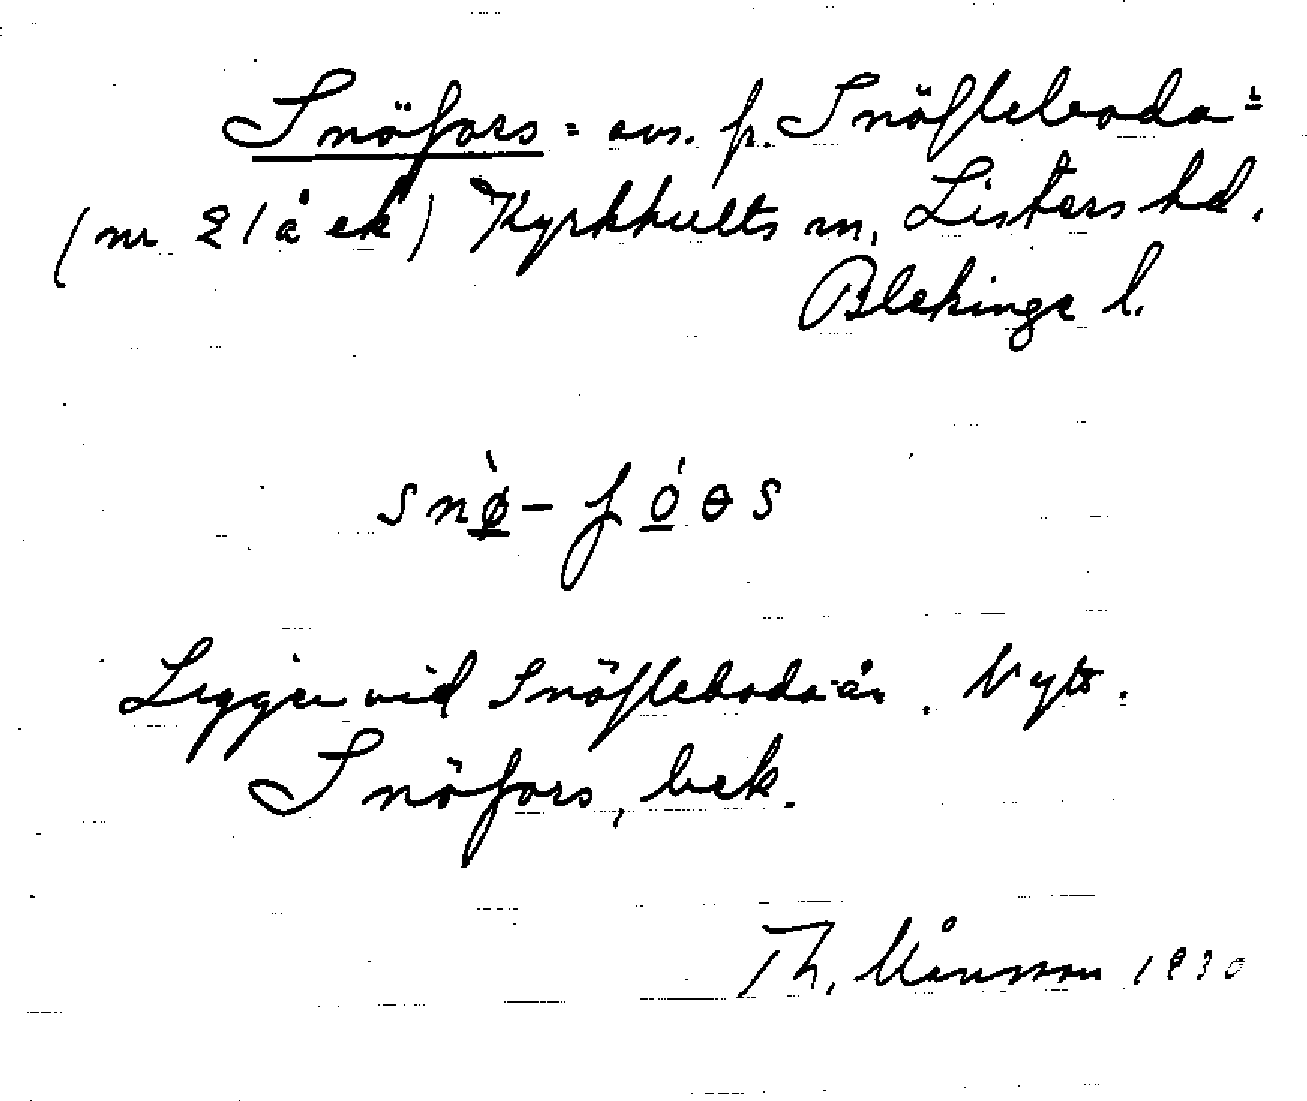 Snöfors = avs. fr. Snöfleboda =
(nr 21 å ek) Kyrkhults sn, Listers hd.
Blekinge l.
snø̀ - fóɵs
Ligger vid Snöfleboda-ån. Nytt.
Snöfors, bek.
Th. Månsson 1930